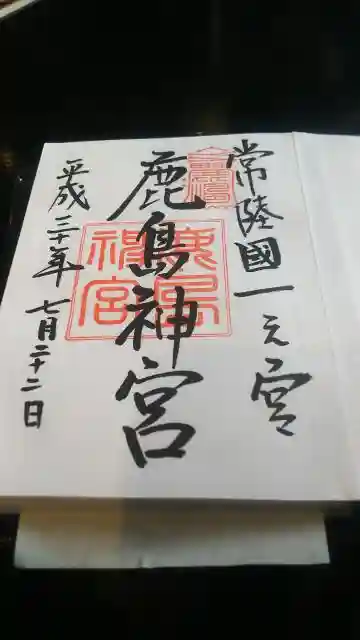 常陸國一之宮
鹿島神宮
鹿島神宮
平成三十年七月二十二日